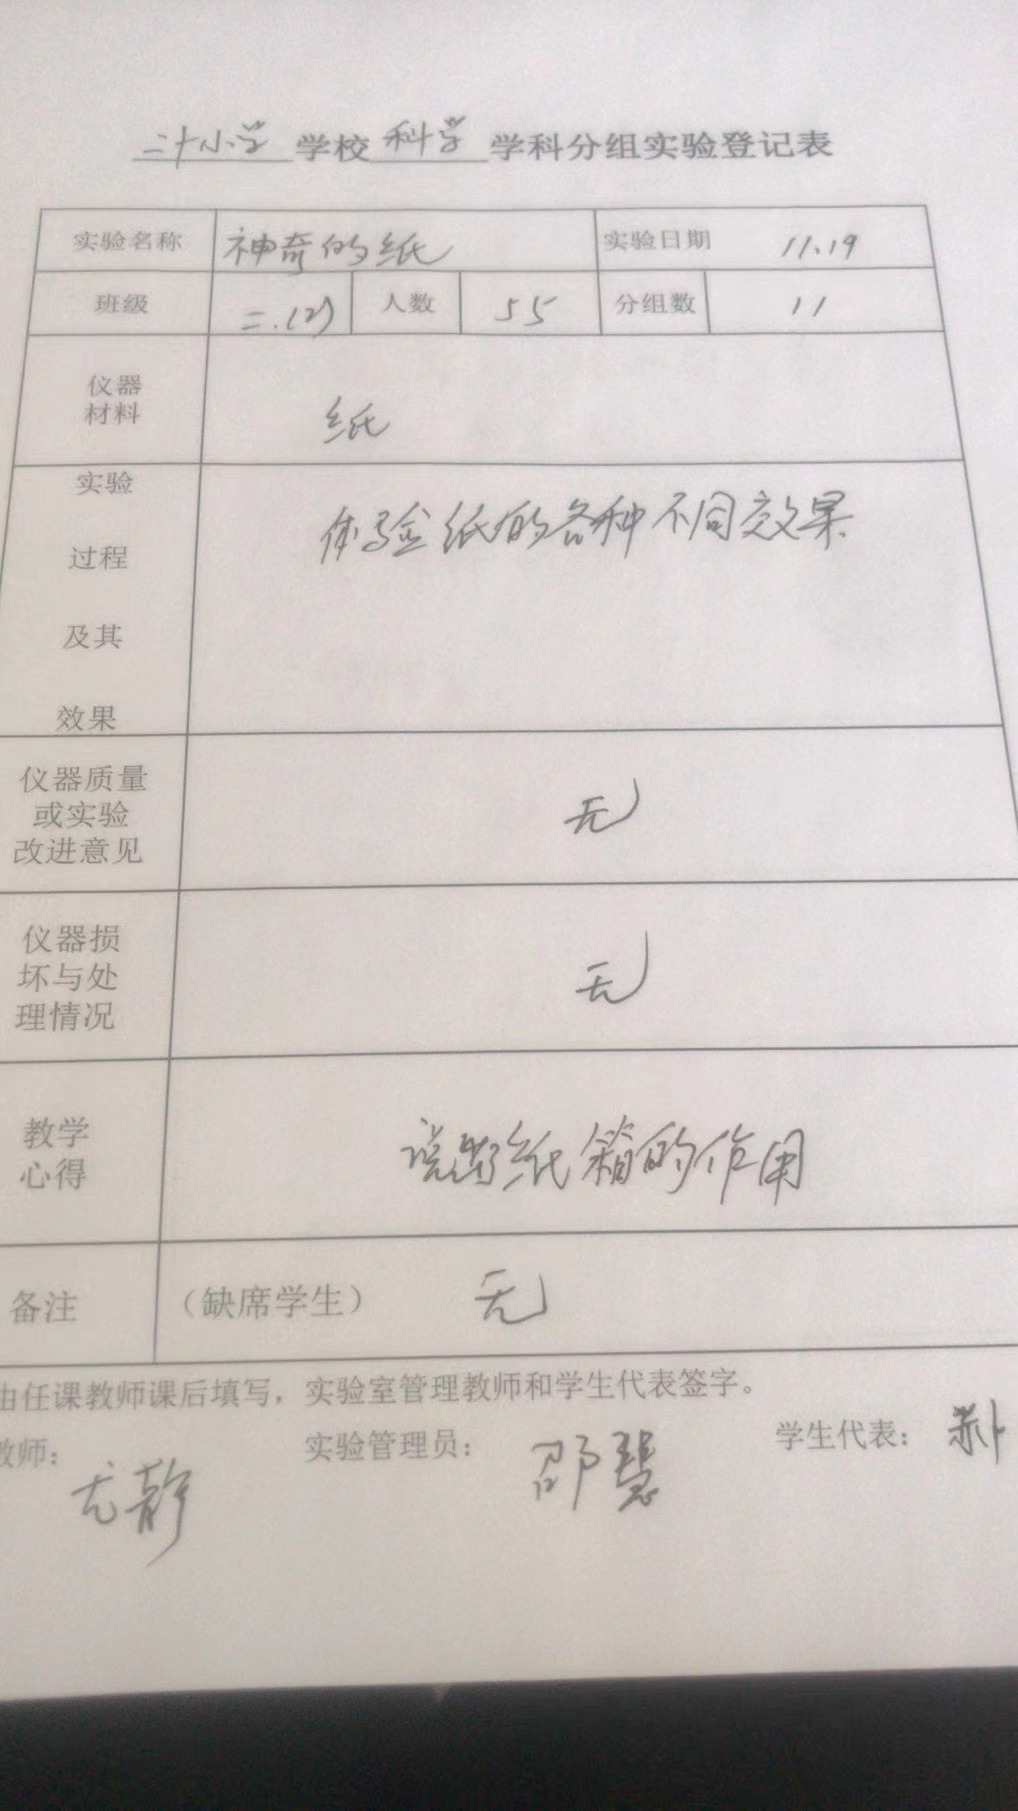 二十小学 学校 科学 学科分组实验登记表
实验名称 神奇的纸 实验日期 11.19
班级 二.(2) 人数 55 分组数 11
仪器
材料
纸
实验
过程
及其
效果
体验纸的各种不同效果
仪器质量
或实验
改进意见
无
仪器损
坏与处
理情况
无
教学
心得
纸箱的作用
备注 （缺席学生） 无
由任课教师课后填写，实验室管理教师和学生代表签字。
教师： 尤静 实验管理员： 邵慧 学生代表：